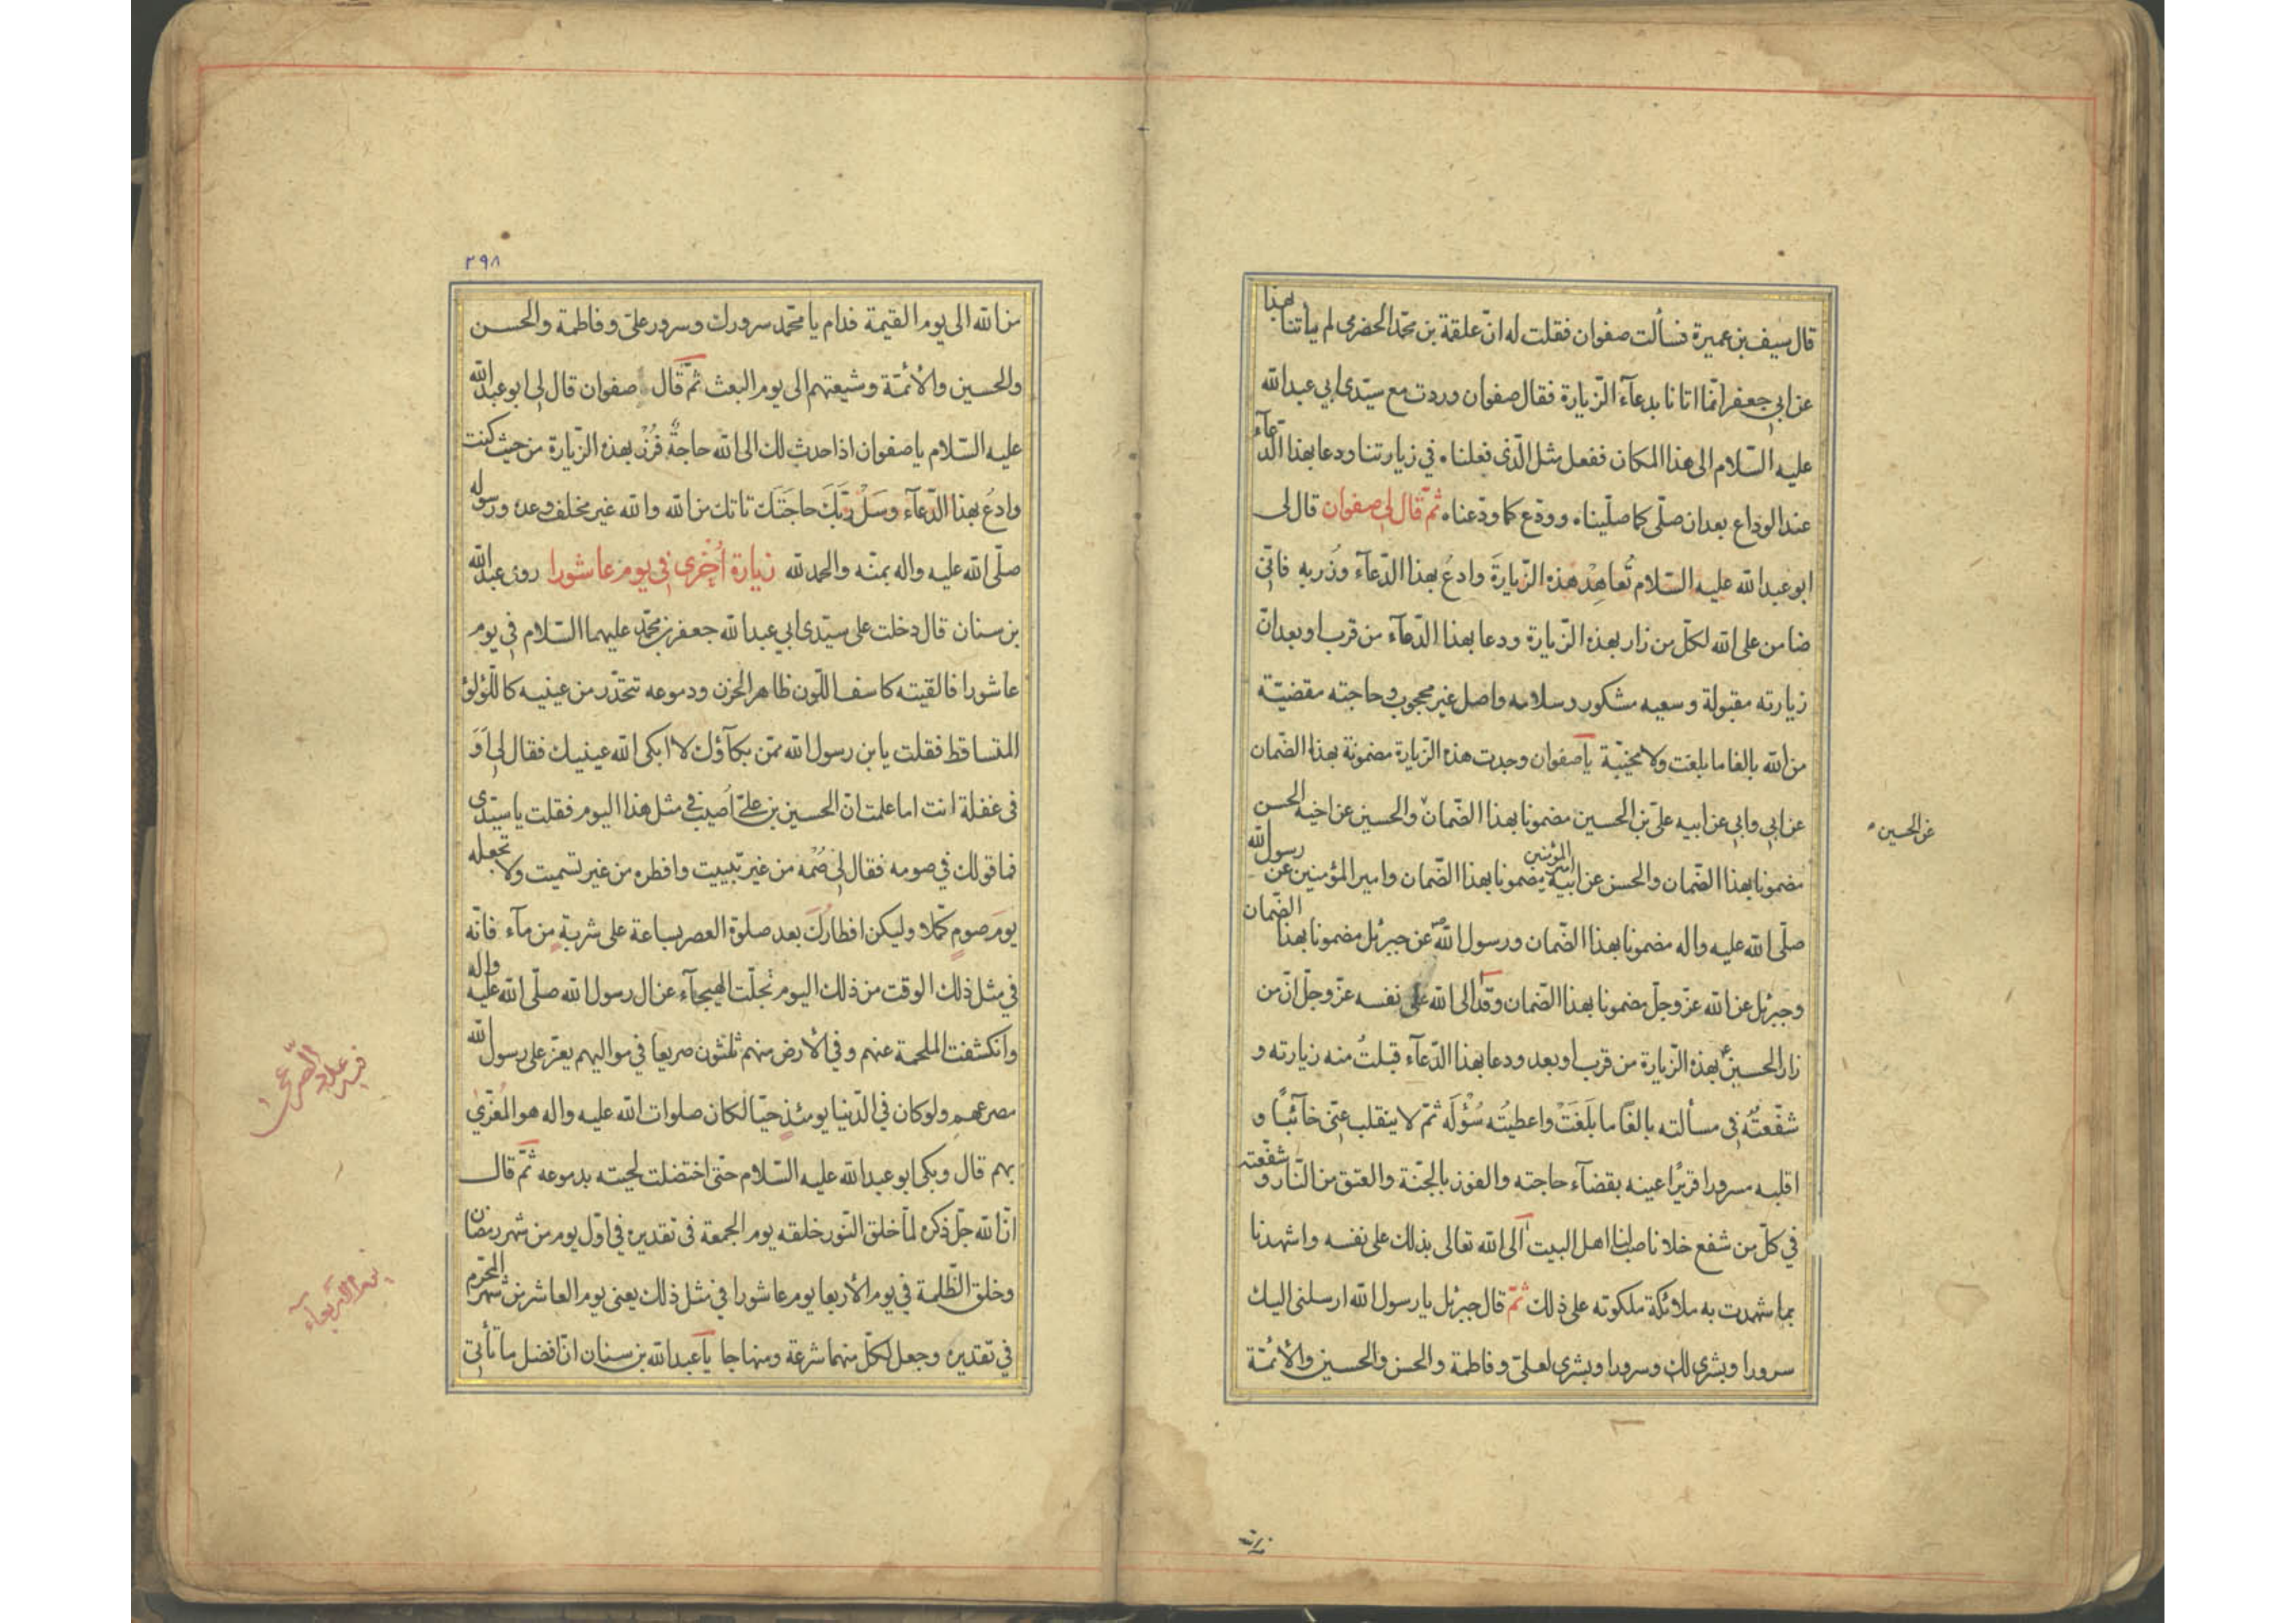 قال سيف بن عميرة فسألت صفوان فقلت له انّ علقة بن محمّد الحضرمى لم يأتنا بهذا
عن ابي جعفر انّما اتانا بدعآء الزّيارة فقال صفوان وردت مع سيّدى ابي عبد الله
عليه السّلام الى هذا المكان ففعل مثل الّذى فعلناه في زيارتنا ودعا بهذا الدّعآء
عند الوداع بعد ان صلّى كما صلّيناه وودّع كما ودّعناه ثمّ قال لي صفوان قال لى
ابو عبد الله عليه السّلام تُعاهِدْ هذه الزّيارةَ وادعُ بهذا الدّعآء وزُر به فانّي
ضامن على الله لكلّ من زار بهذه الزّيارة ودعا بهذا الدّعآء من قرب او بعد انّ
زيارته مقبولة وسعيه مشكور وسلامه واصل غير محجوب وحاجته مقضيّة
من الله بالغا ما بلغت ولا يخيّبه يا صفوان وجدت هذه الزّيارة مضمونة بهذا الضّمان
عن ابي وابي عن ابيه علىّ بن الحسين مضمونا بهذا الضّمان والحسين عن اخيه الحسن
عن الحسين
مضمونا بهذا الضّمان والحسن عن ابيه امير المؤمنين مضمونا بهذا الضّمان وامير المؤمنين عن رسول الله
صلّى الله عليه واله مضمونا بهذا الضّمان ورسول الله عن جبرئل مضمونا بهذا الضّمان
وجبرئل عن الله عزّ وجلّ مضمونا بهذا الضّمان وقد الى الله على نفسه عزّ وجلّ انّ من
زار الحسين بهذه الزّيارة من قرب او بعد ودعا بهذا الدّعآء قبلتُ منه زيارته و
شفّعتُه في مسألته بالغًا ما بَلَغَتْ واعطيتُه سُؤْلَه ثمّ لا ينقلب عنّى خآئبًا و
اقلبه مسرورا قريرًا عينه بقضآء حاجته والفوز بالجنّة والعتق من النّار وشفّعته
في كلّ من شفع خلا ناصب لنا اهل البيت آلى الله تعالى بذلك على نفسه واشهدنا
بما شهدت به ملائكة ملكوته على ذلك ثمّ قال جبرئل يا رسول الله ارسلنى اليك
سرورا وبشرى لك وسرورا وبشرى لعلىّ وفاطمة والحسن والحسين والأئمّة
من الله
٢٩٨
من الله الى يوم القيمة فدام يا محمّد سرورك وسرور علىّ وفاطمة والحسن
والحسين والأئمّة وشيعتهم الى يوم البعث ثمّ قال صفوان قال لي ابو عبد الله
عليه السّلام يا صفوان اذا حدث لك الى الله حاجةٌ فزُرْ بهذه الزّيارة من حيث كنت
وادعُ بهذا الدّعآء وسَلْ ربّكَ حاجتَكَ تاتك من الله والله غير مخلف وعده ورسوله
صلّى الله عليه واله بمنّه والحمد لله زيارة أُخرى في يوم عاشورا روى عبد الله
بن سنان قال دخلت على سيّدى ابي عبد الله جعفر بن محمّد عليهما السّلام في يوم
عاشورا فالقيته كاسف اللّون ظاهر الحزن ودموعه تتحدّر من عينيه كاللّؤلؤ
المتساقط فقلت يا بن رسول الله ممّ بكآؤك لا ابكى الله عينيك فقال لي اَوَ
فى غفلة انت اما علمت انّ الحسين بن علىّ اُصيب في مثل هذا اليوم فقلت يا سيّدى
فما قولك في صومه فقال لي صُمْه من غير تبييت وافطره من غير تشميت ولا تجعله
يومَ صومٍ كَمَلا وليكن افطارُكَ بعد صلوة العصر بساعة على شربةٍ من مآء فانّه
في مثل ذلك الوقت من ذلك اليوم تجلّت الهيجآء عن ال رسول الله صلّى الله عليه واله
وانكشفت الملحمة عنهم وفي الأرض منهم ثلثون صريعا في مواليهم يعزّ على رسول الله
مصرعهم ولو كان في الدّنيا يومئذٍ حيّا لكان صلوات الله عليه واله هو المُعَزّى
بهم قال وبكى ابو عبد الله عليه السّلام حتى اخضلت لحيته بدموعه ثمّ قال
انّ الله جلّ ذكره لمّا خلق النّور خلقه يوم الجمعة في تقديره في اوّل يوم من شهر رمضان
وخلق الظّلمة في يوم الأربعا يوم عاشورا في مثل ذلك يعنى يوم العاشر من شهر المحرّم
في تقديره وجعل لكلّ منهما شرعة ومنهاجا يا عبد الله بن سنان انّ افضل ما تأتي